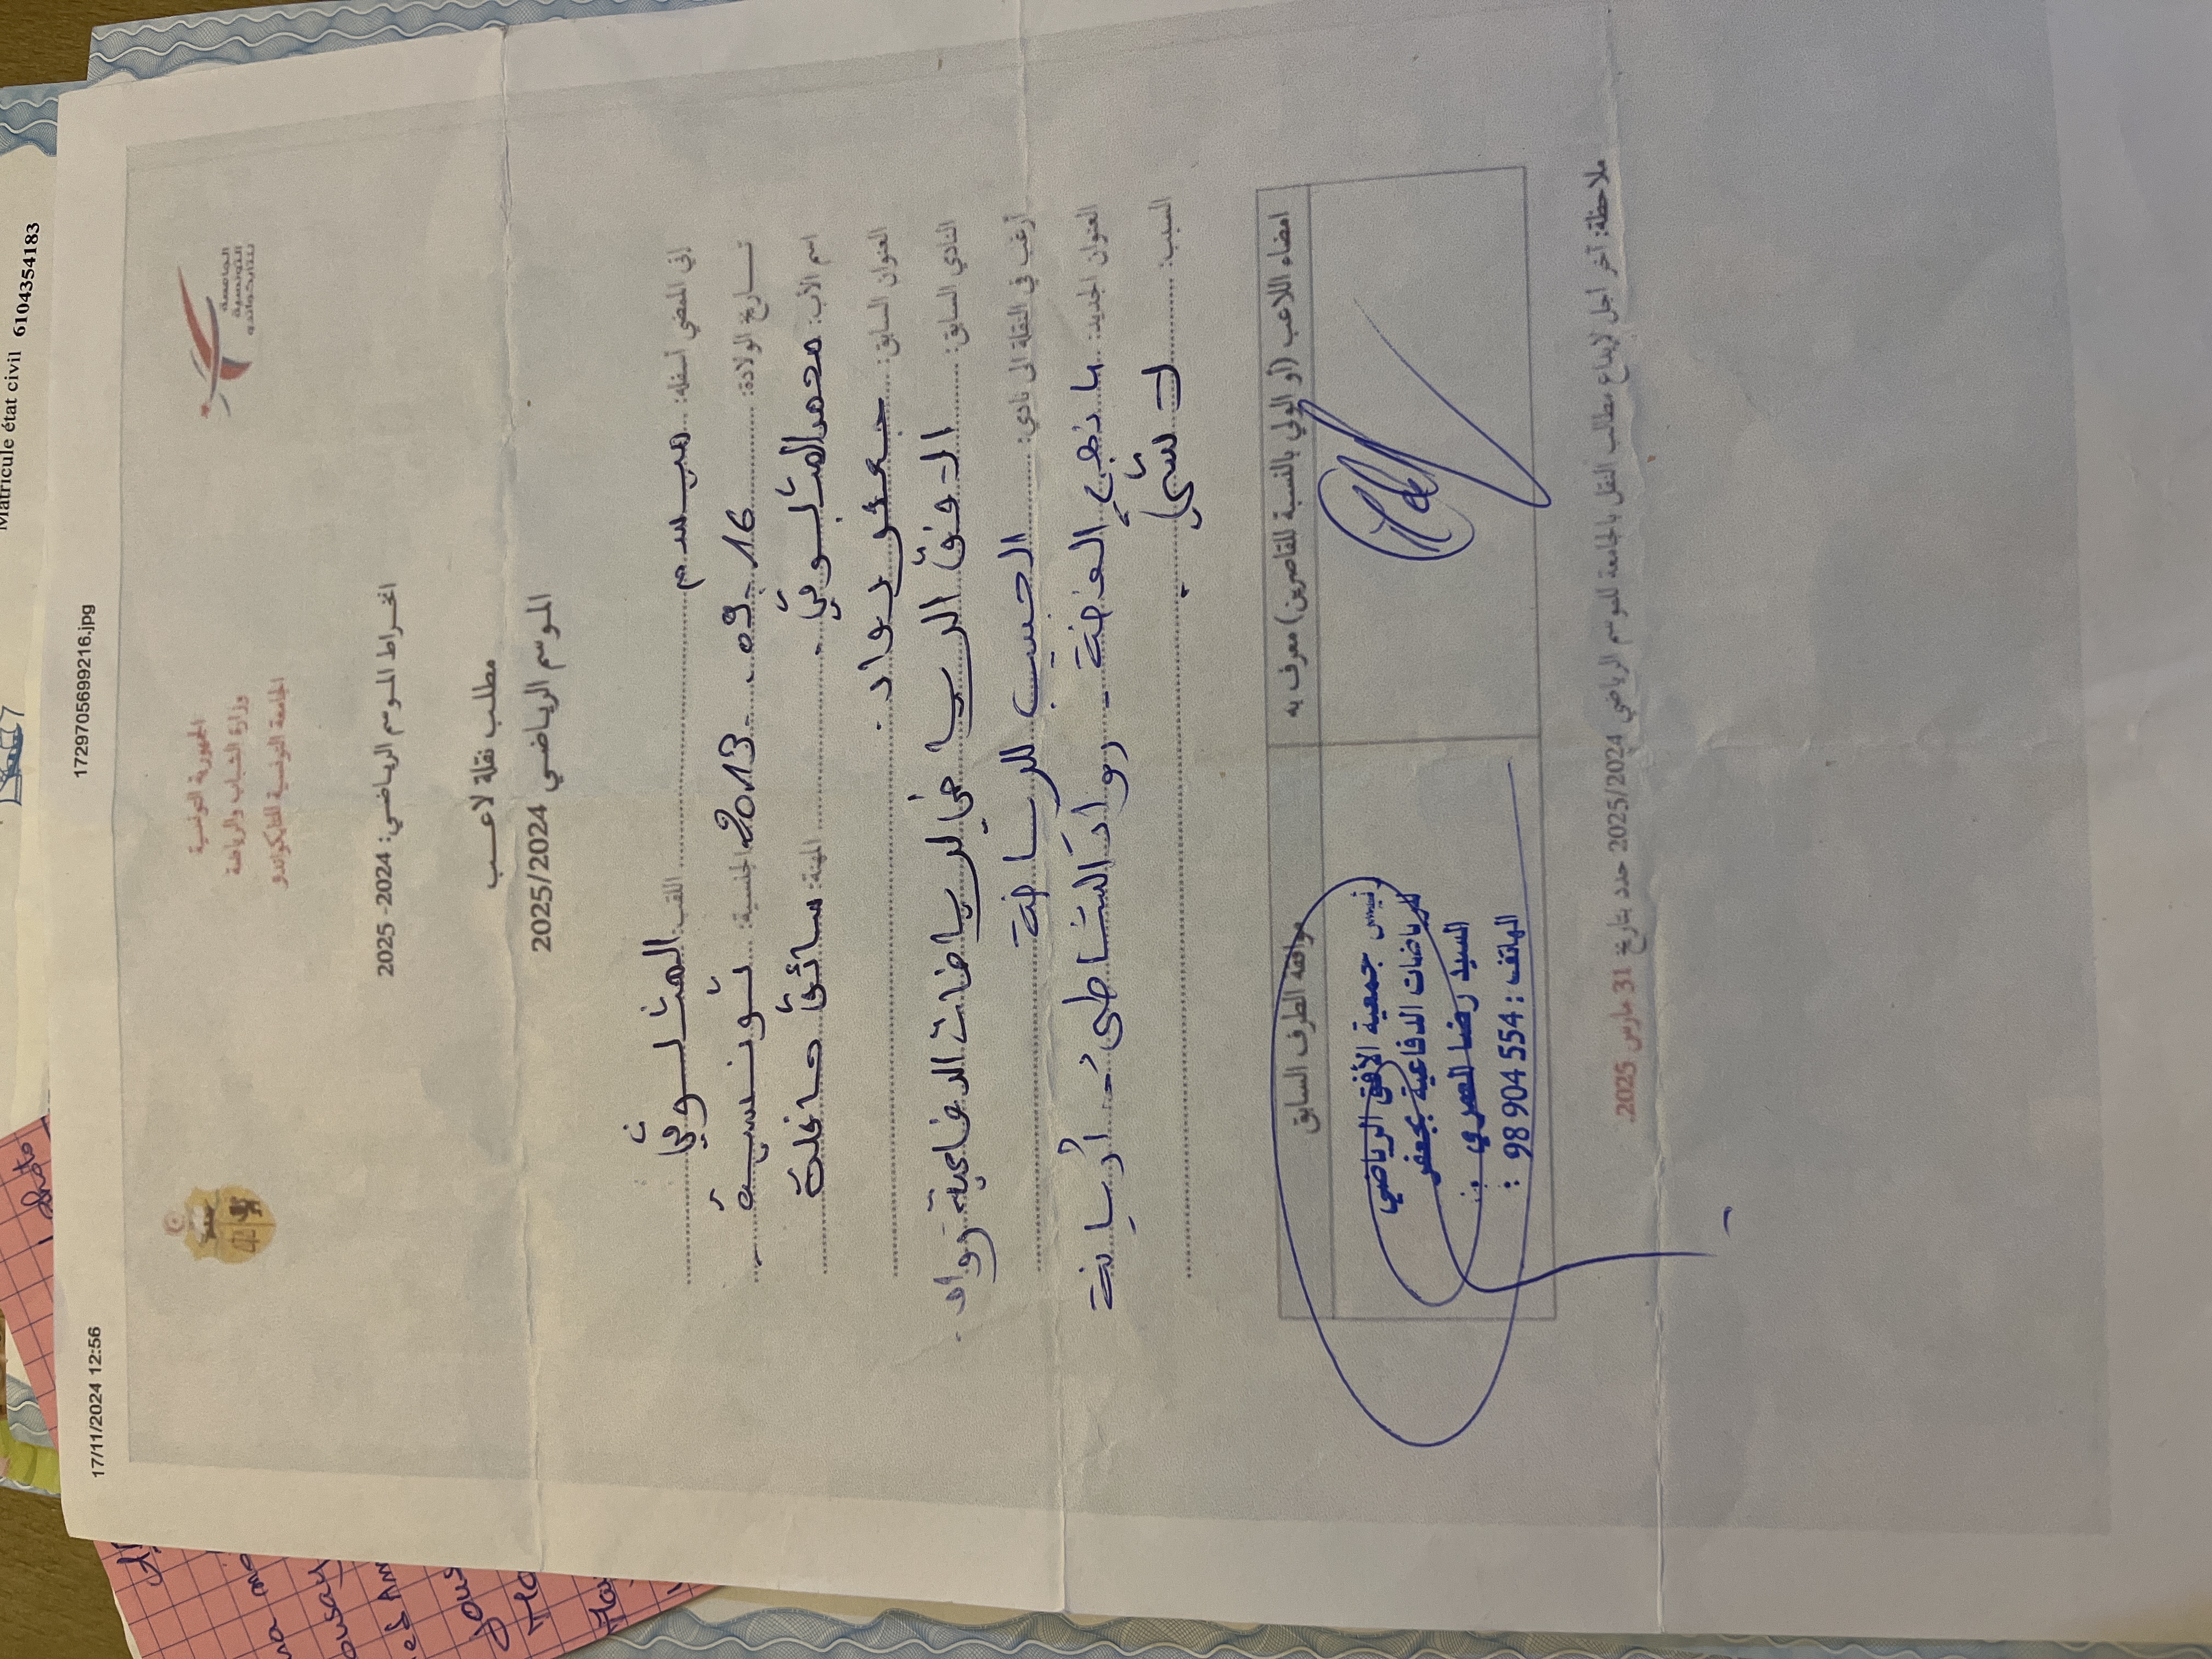 Matricule état civil 6104354183
17/11/2024 12:56
1729705699216.jpg
الجمهورية التونسية
وزارة الشباب والرياضة
الجامعة التونسية للتايكواندو
الجامعة
التونسية
للتايكواندو
انخراط الموسم الرياضي: 2024- 2025
مطلب نقلة لاعب
الموسم الرياضي 2025/2024
إني الممضي أسفله: ميسم اللقب: المثلوثي
تاريخ الولادة: 16 . 09 . 2013 الجنسية: تونسية
اسم الأب: محمد المثلوثي المهنة: سائق حافلة
العنوان السابق: جعفر رواد.
النادي السابق: الافق الرياضي للرياضات الدفاعية رواد.
أرغب في النقلة الى نادي: الحسيب للرياضة
العنوان الجديد: نهج الفضة - رواد الشاطئ - أريانة
السبب:
امضاء اللاعب (أو الولي بالنسبة للقاصرين) معرف به
موافقة الطرف السابق
رئيس جمعية الأفق الرياضي
للرياضات الدفاعية بجعفر
السيد رضا العمري :
الهاتف : 98 904 554 :
ملاحظة: آخر اجل لإيداع مطالب النقل بالجامعة للموسم الرياضي 2025/2024 حدد بتاريخ 31 مارس 2025.